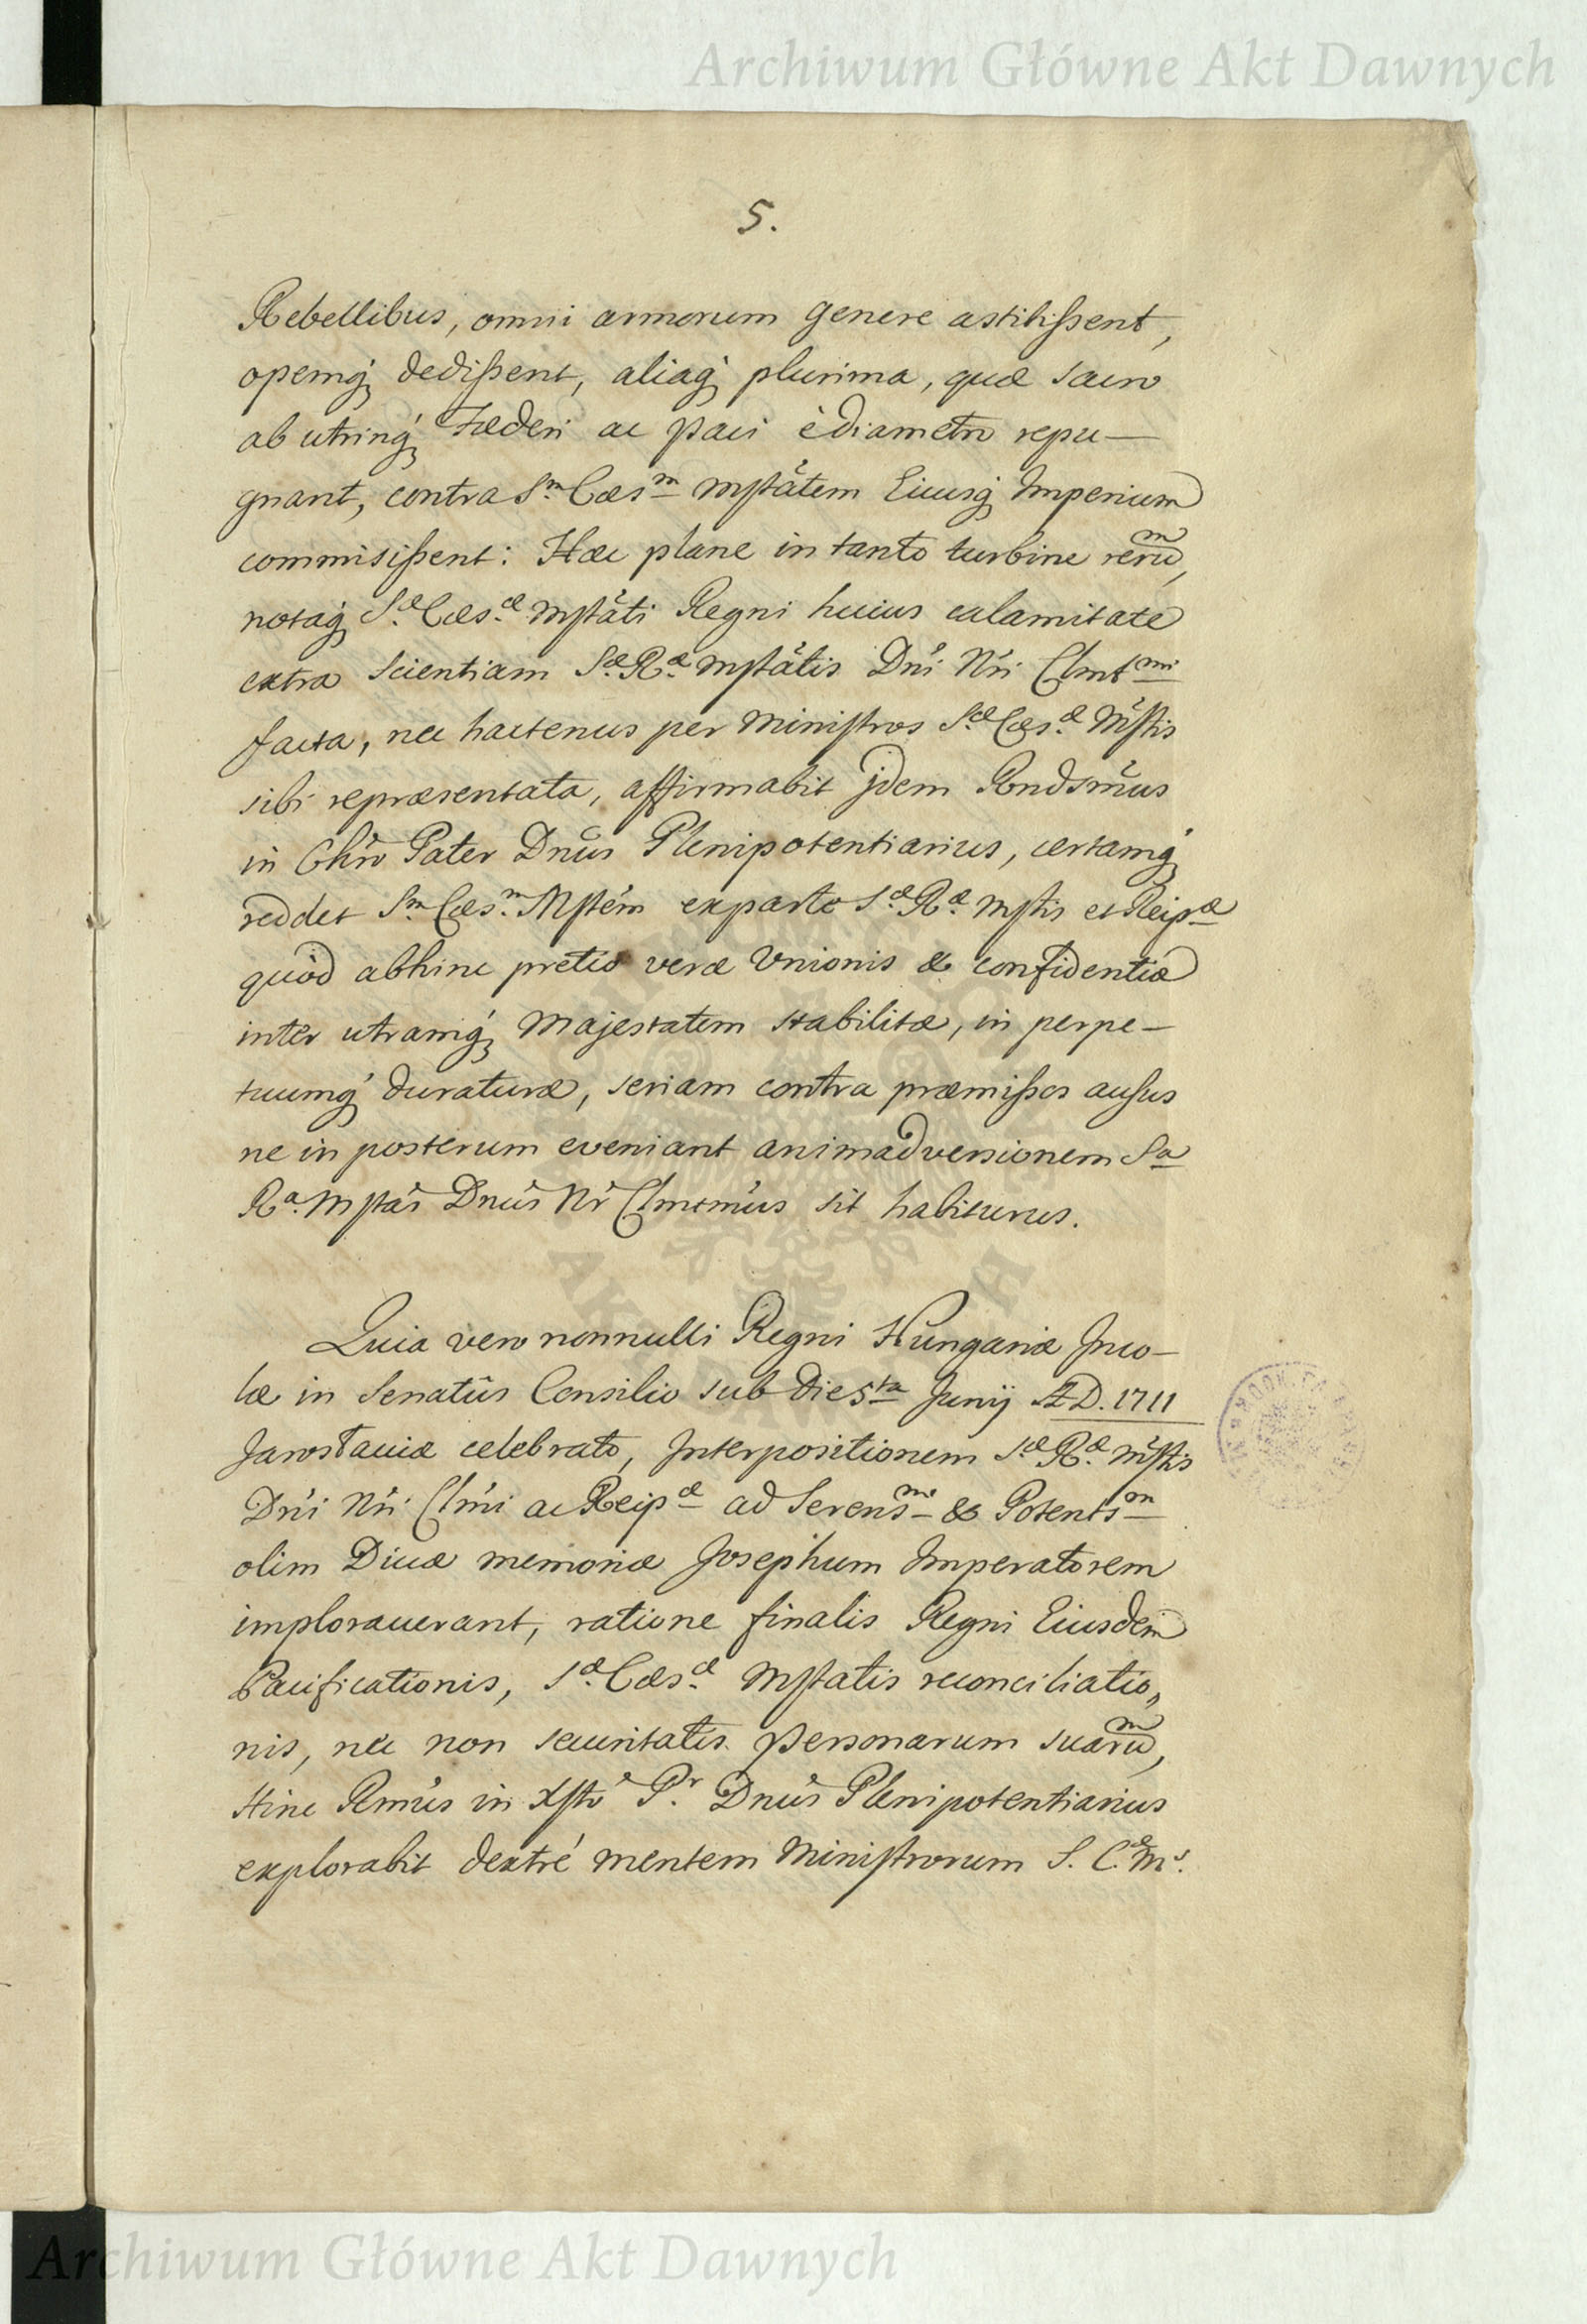 Archiwum Główne Akt Dawnych
5.
Rebellibus, omni armorum genere astitißent,
opemq́ꝫ dedißent, aliaq́ꝫ plurima, quæ sacro
ab utrinq́ꝫ Fæderi ac paci è diametro repu—
gnant, contra Sᵐ Cæsᵐ Mstătem Eiusq́ꝫ Imperium
commisißent: Hæc plane in tanto turbine rerum,
notaq́ꝫ Sᵃᵉ Cæs.ᵃᵉ Mstăti Regni huius calamitate
extra Scientiam Sᵃᵉ Rᵃᵉ Mstătis Dn̄i Nr̄i Clmtᵐⁱ
facta, nec hactenus per Ministros Sᵃᵉ Cæs.ᵃᵉ Mstis
sibi repræsentata, affirmabit jdem Rndsm̄us
in Chr̄o Pater Dn̄us Plenipotentiarius, certamq́ꝫ
reddet Sᵐ Cæs.ᵐ Mstem ex parte Sᵃᵉ Rᵃᵉ Mstis et Reipᵃᵉ
quòd abhinc pretio veræ Vnionis & confidentiæ
inter utramq́ꝫ Majestatem stabilitæ, in perpe—
tuumq́ꝫ duraturæ, seriam contra præmißos ausus
ne in posterum eveniant animadversionem Sᵃ
Rᵃ Mstas Dn̄us Nr̄ Clmtm̄us sit habiturus.
Quia vero nonnulli Regni Hungariæ Inco—
læ in Senatûs Consilio sub die 5ᵗᵃ Junij A.D. 1711
Jarosłaviæ celebrato, Interpositionem Sᵃᵉ Rᵃᵉ Mstis
Dn̄i Nr̄i Clm̄i ac Reipᵃᵉ ad Serensᵐ & Potentsᵐ
olim Diuæ memoriæ Josephum Imperatorem
implorauerant, ratione finalis Regni Eiusdem
Pacificationis, Sᵃᵉ Cæs.ᵃᵉ Mstatis reconciliatio„
nis, nec non securitatis personarum suarum,
Hinc Rm̄us in Xsto Pʳ. Dn̄us Plenipotentiarius
explorabit dextré mentem Ministrorum S. C. Mˢ.
Archiwum Główne Akt Dawnych